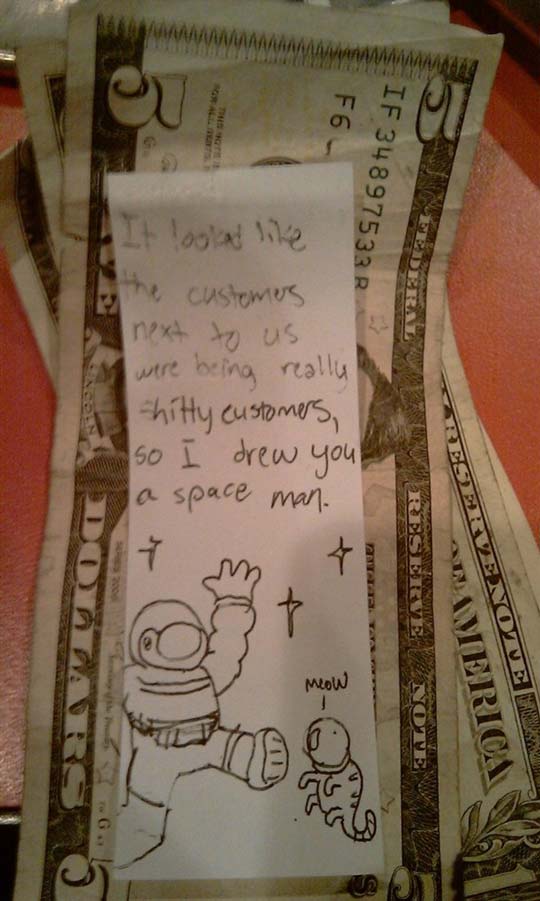 It looked like
the customers
next to us
were being really
shitty customers,
so I drew you
a space man.
meow
5
5
IF 34897533 B
F6
FEDERAL RESERVE NOTE
LINCOLN
DOLLARS
SERIES 2006
RESERVE NOTE
OF AMERICA
5
5
1